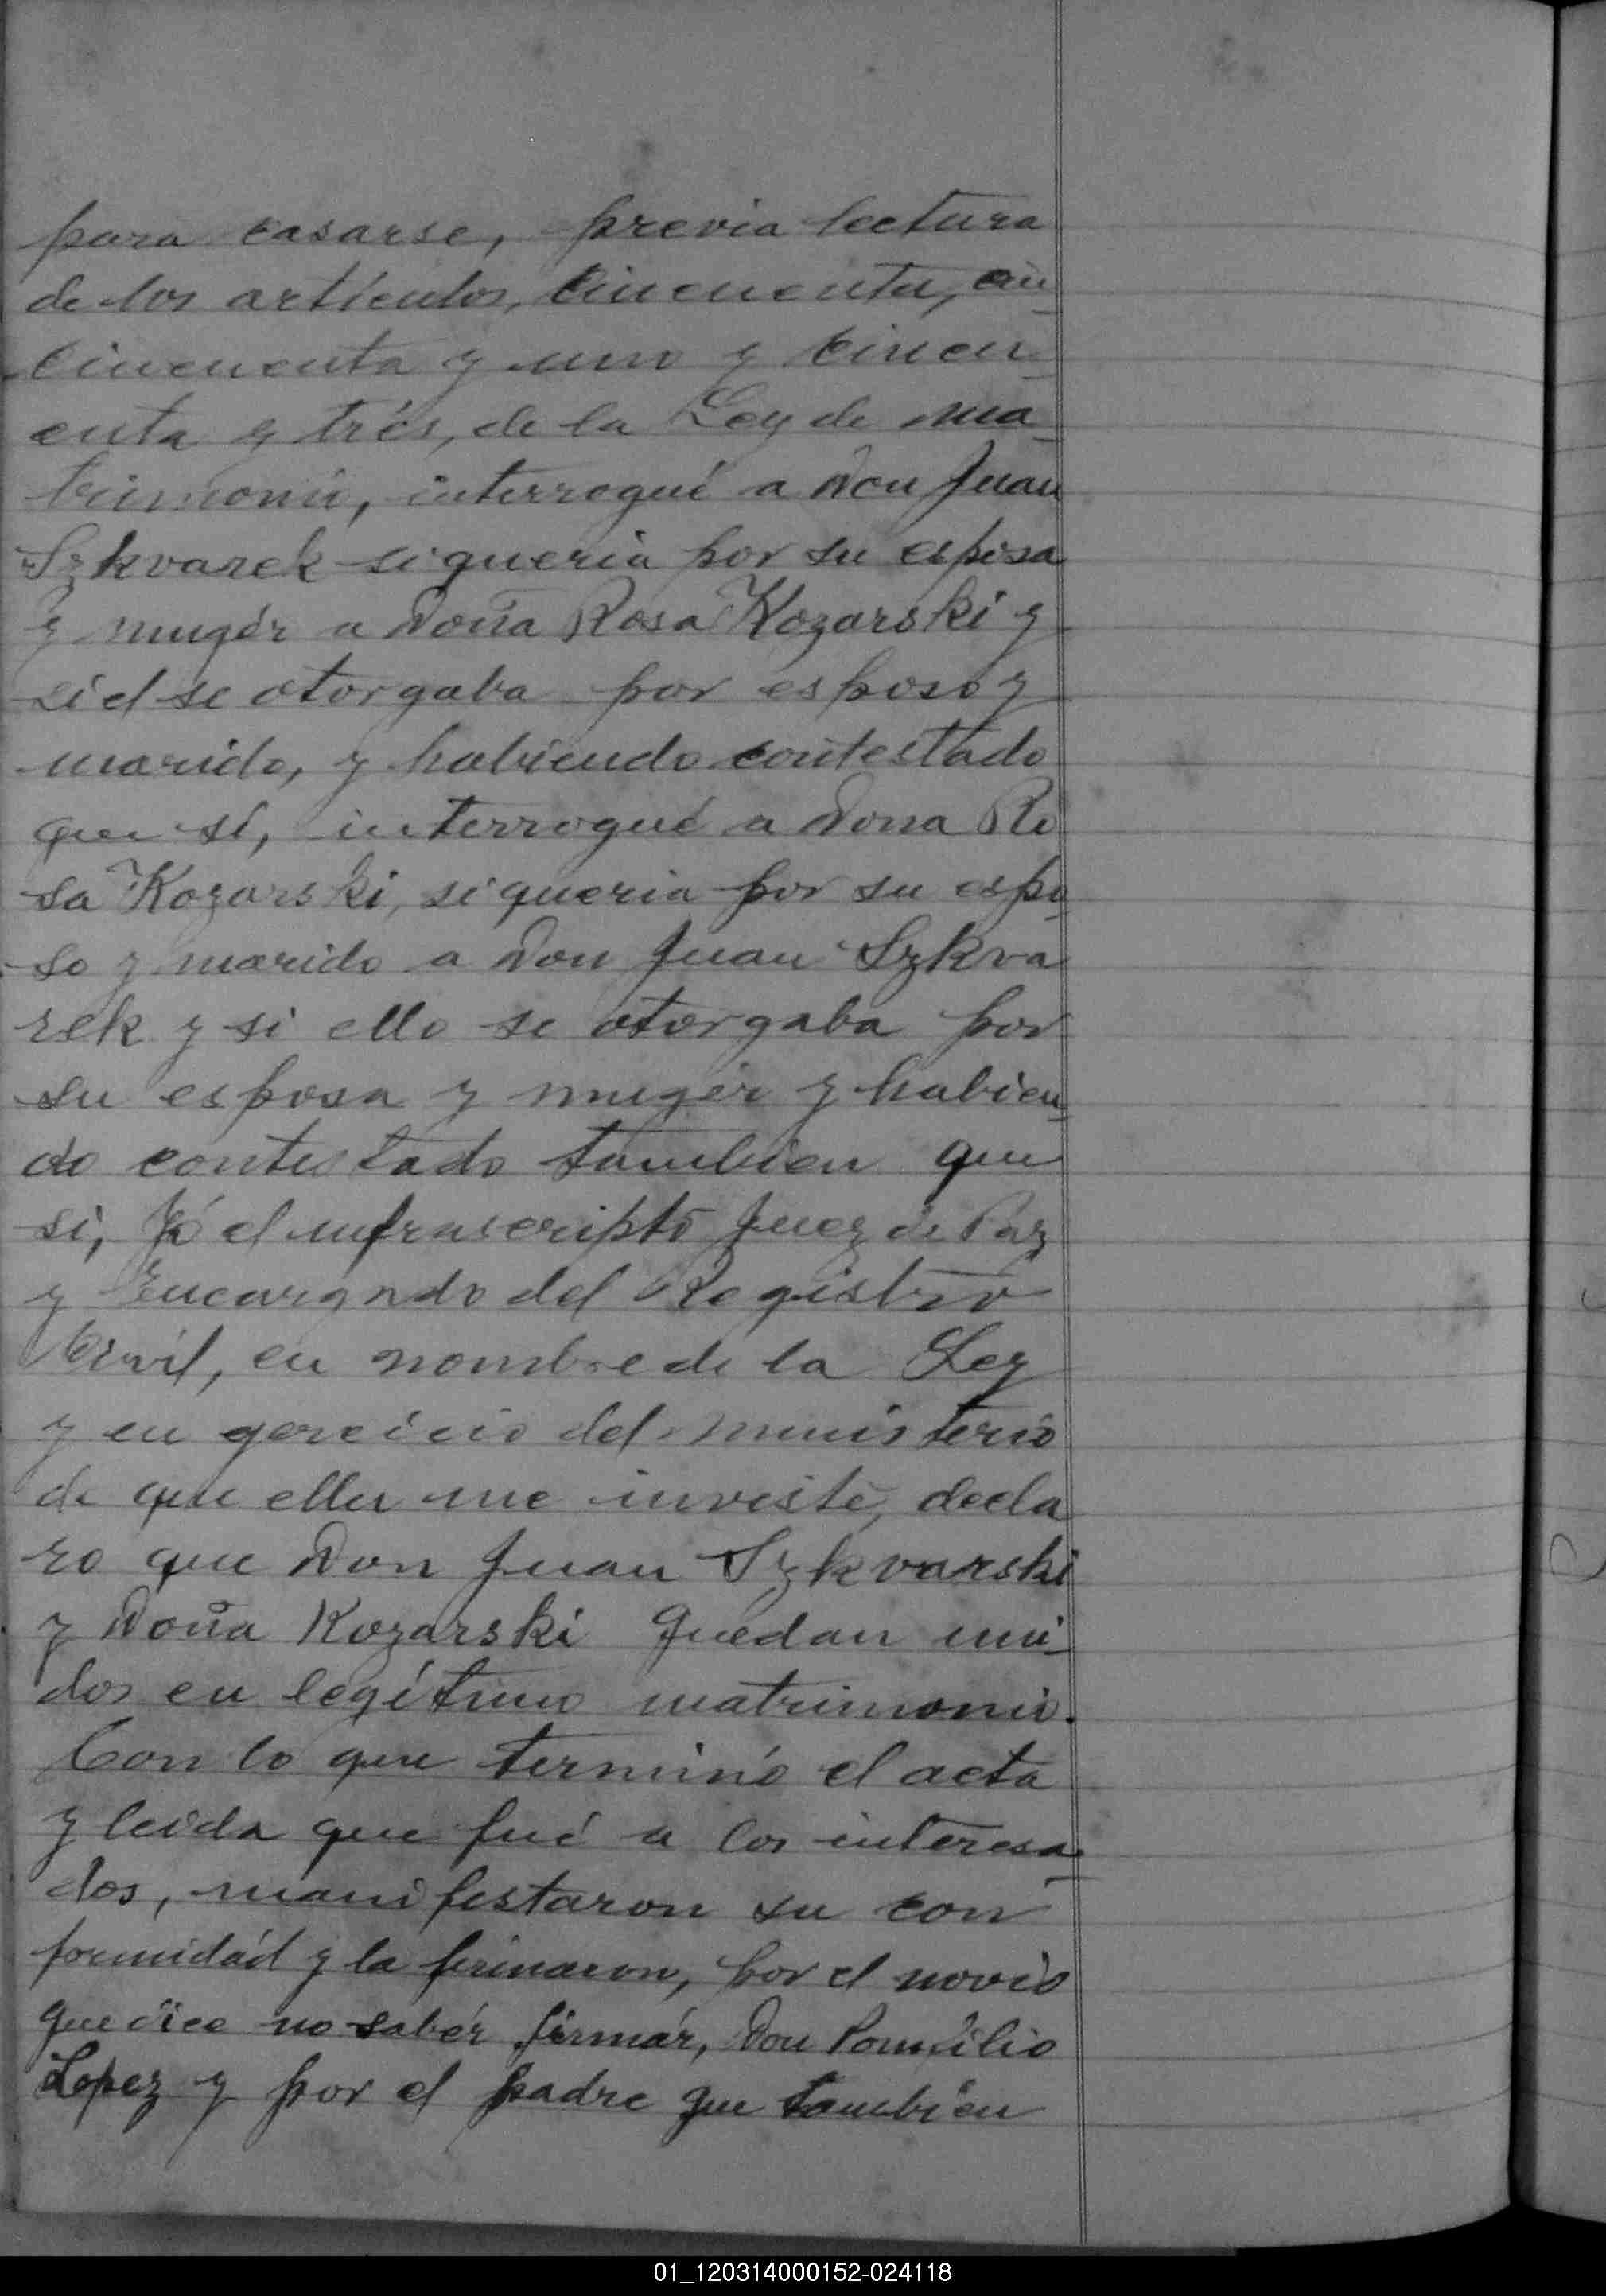 para casarse, previa lectura
de los artículos, Cincuenta, cin
Cincuenta y uno y Cincu
enta y trés, de la Ley de Ma
trimonio, interrogué a Don Juan
Szkvarek si queria por su esposa
y mugér a Doña Rosa Kozarski y
si el se otorgaba por esposo y
marido, y habiendo contestado
que sí, interrogué a Dona Ro
sa Kozarski, si queria por su espo
so y marido a Don Juan Szkva
rek y si ella se otorgaba por
su esposa y mugér y habien
do contestado tambien que
si, Yó el infrascripto Juez de Paz
y Encargado del Registro
Civil, en nombre de la Ley
y en gercicio del ministerio
de que ella me inviste, decla
ro que Don Juan Szkvarski
y Doña Kozarski quedan uni
dos en legítimo matrimonio.
Con lo que terminó el acta
y leida que fué a los interesa
dos, manifestaron su con
formidád y la firmaron, por el novio
que dice no sabér firmár, Don Pompilio
Lopez y por el padre que tambien
01_120314000152-024118